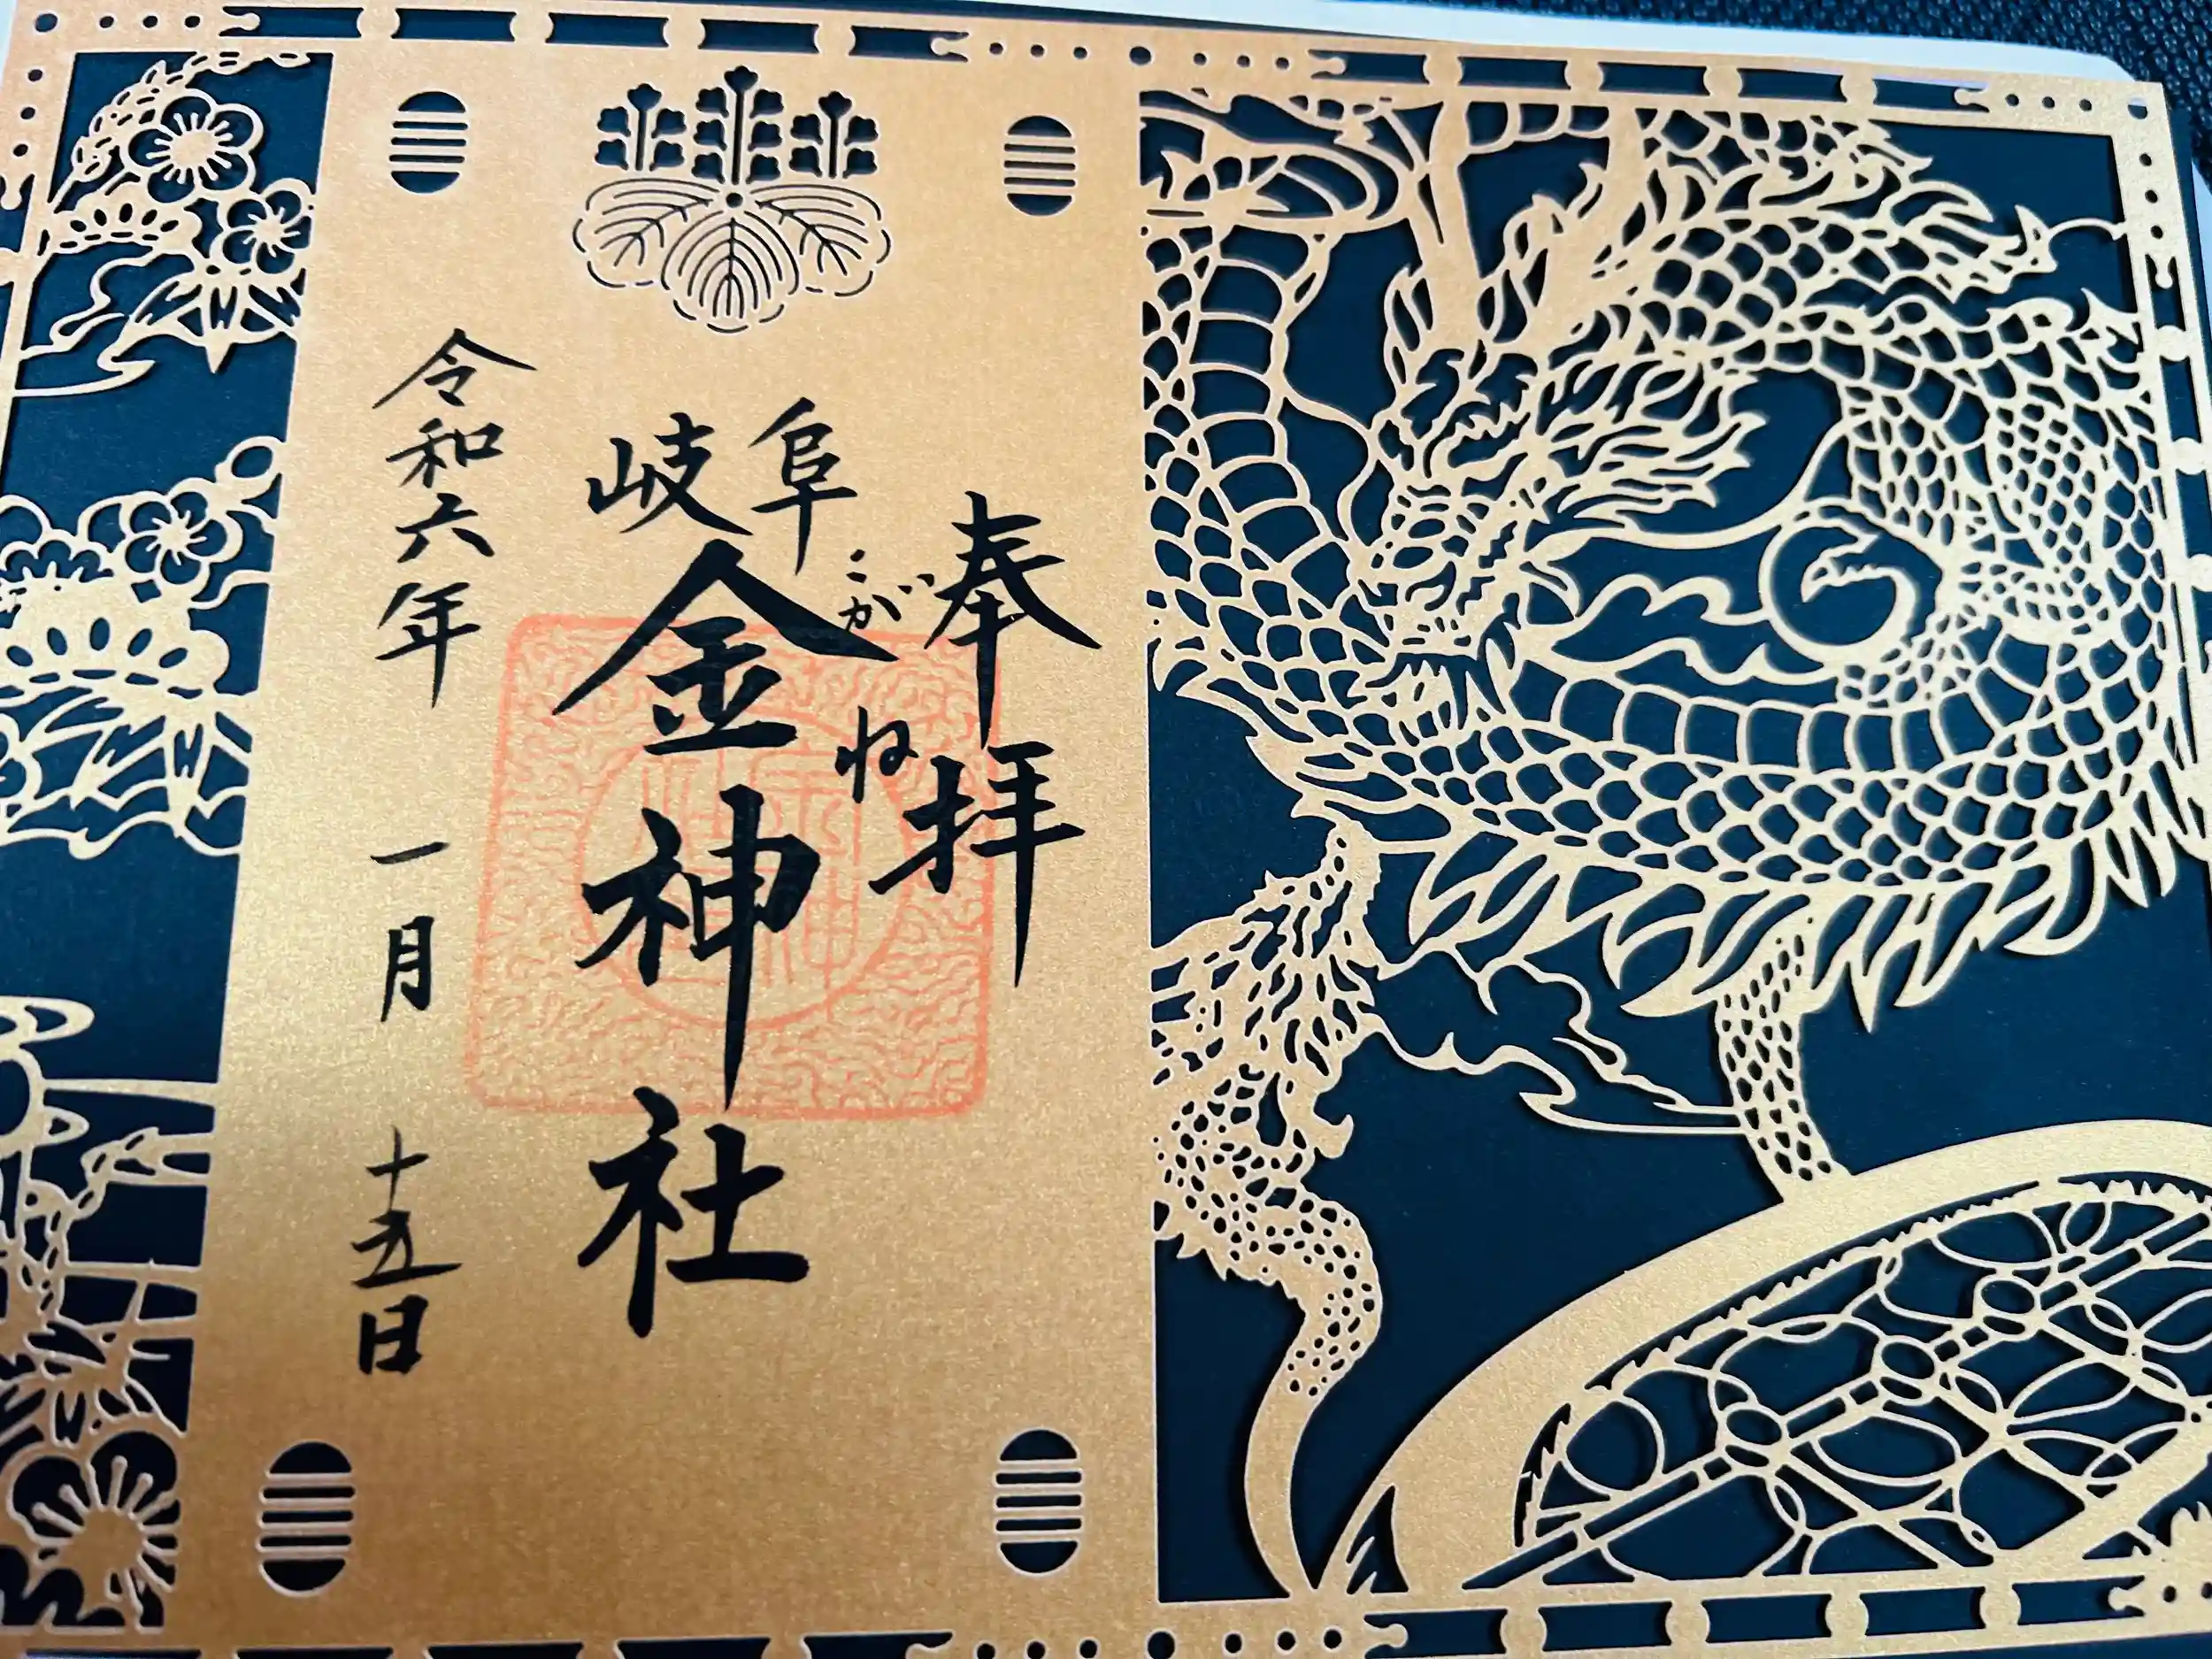 奉拝
岐阜
こがね
金神社
令和六年 一月 十五日